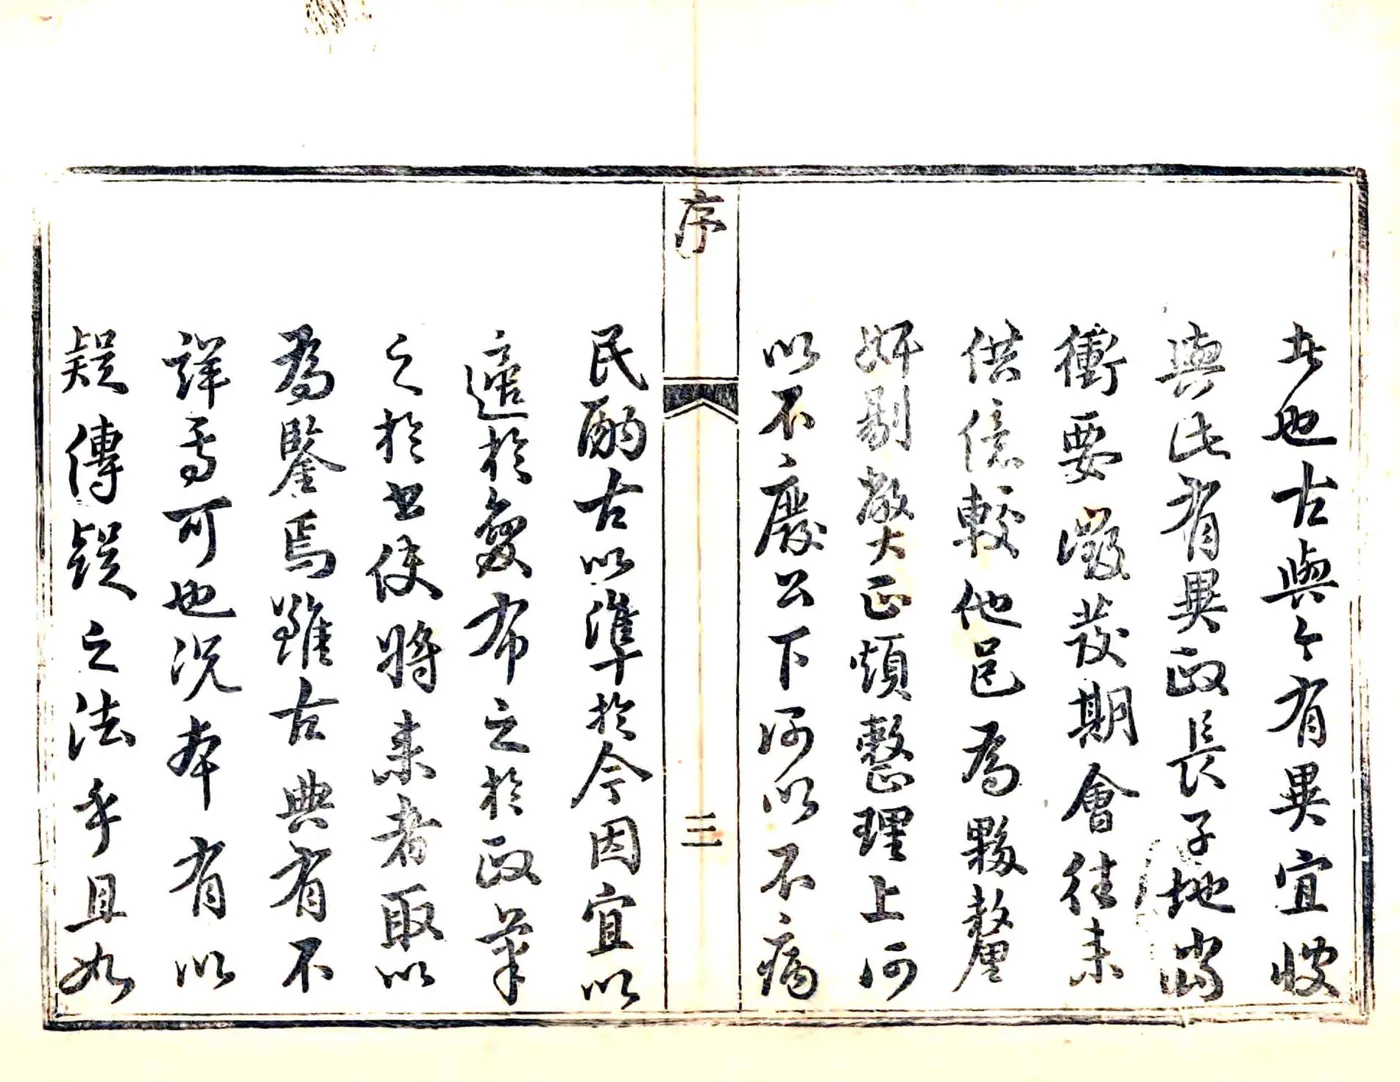 者也古與今有異宜故
與此有異政長子地當
衝要徵發期會往來
供億較他邑為夥釐
奸剔弊大正煩整理上何
以不廢公下何以不病
序
三
民酌古以準於今因宜以
適於變布之於政筆
之於書使將來者取以
為鑒焉雖古典有不
詳焉可也況本有以
疑傳疑之法乎且如